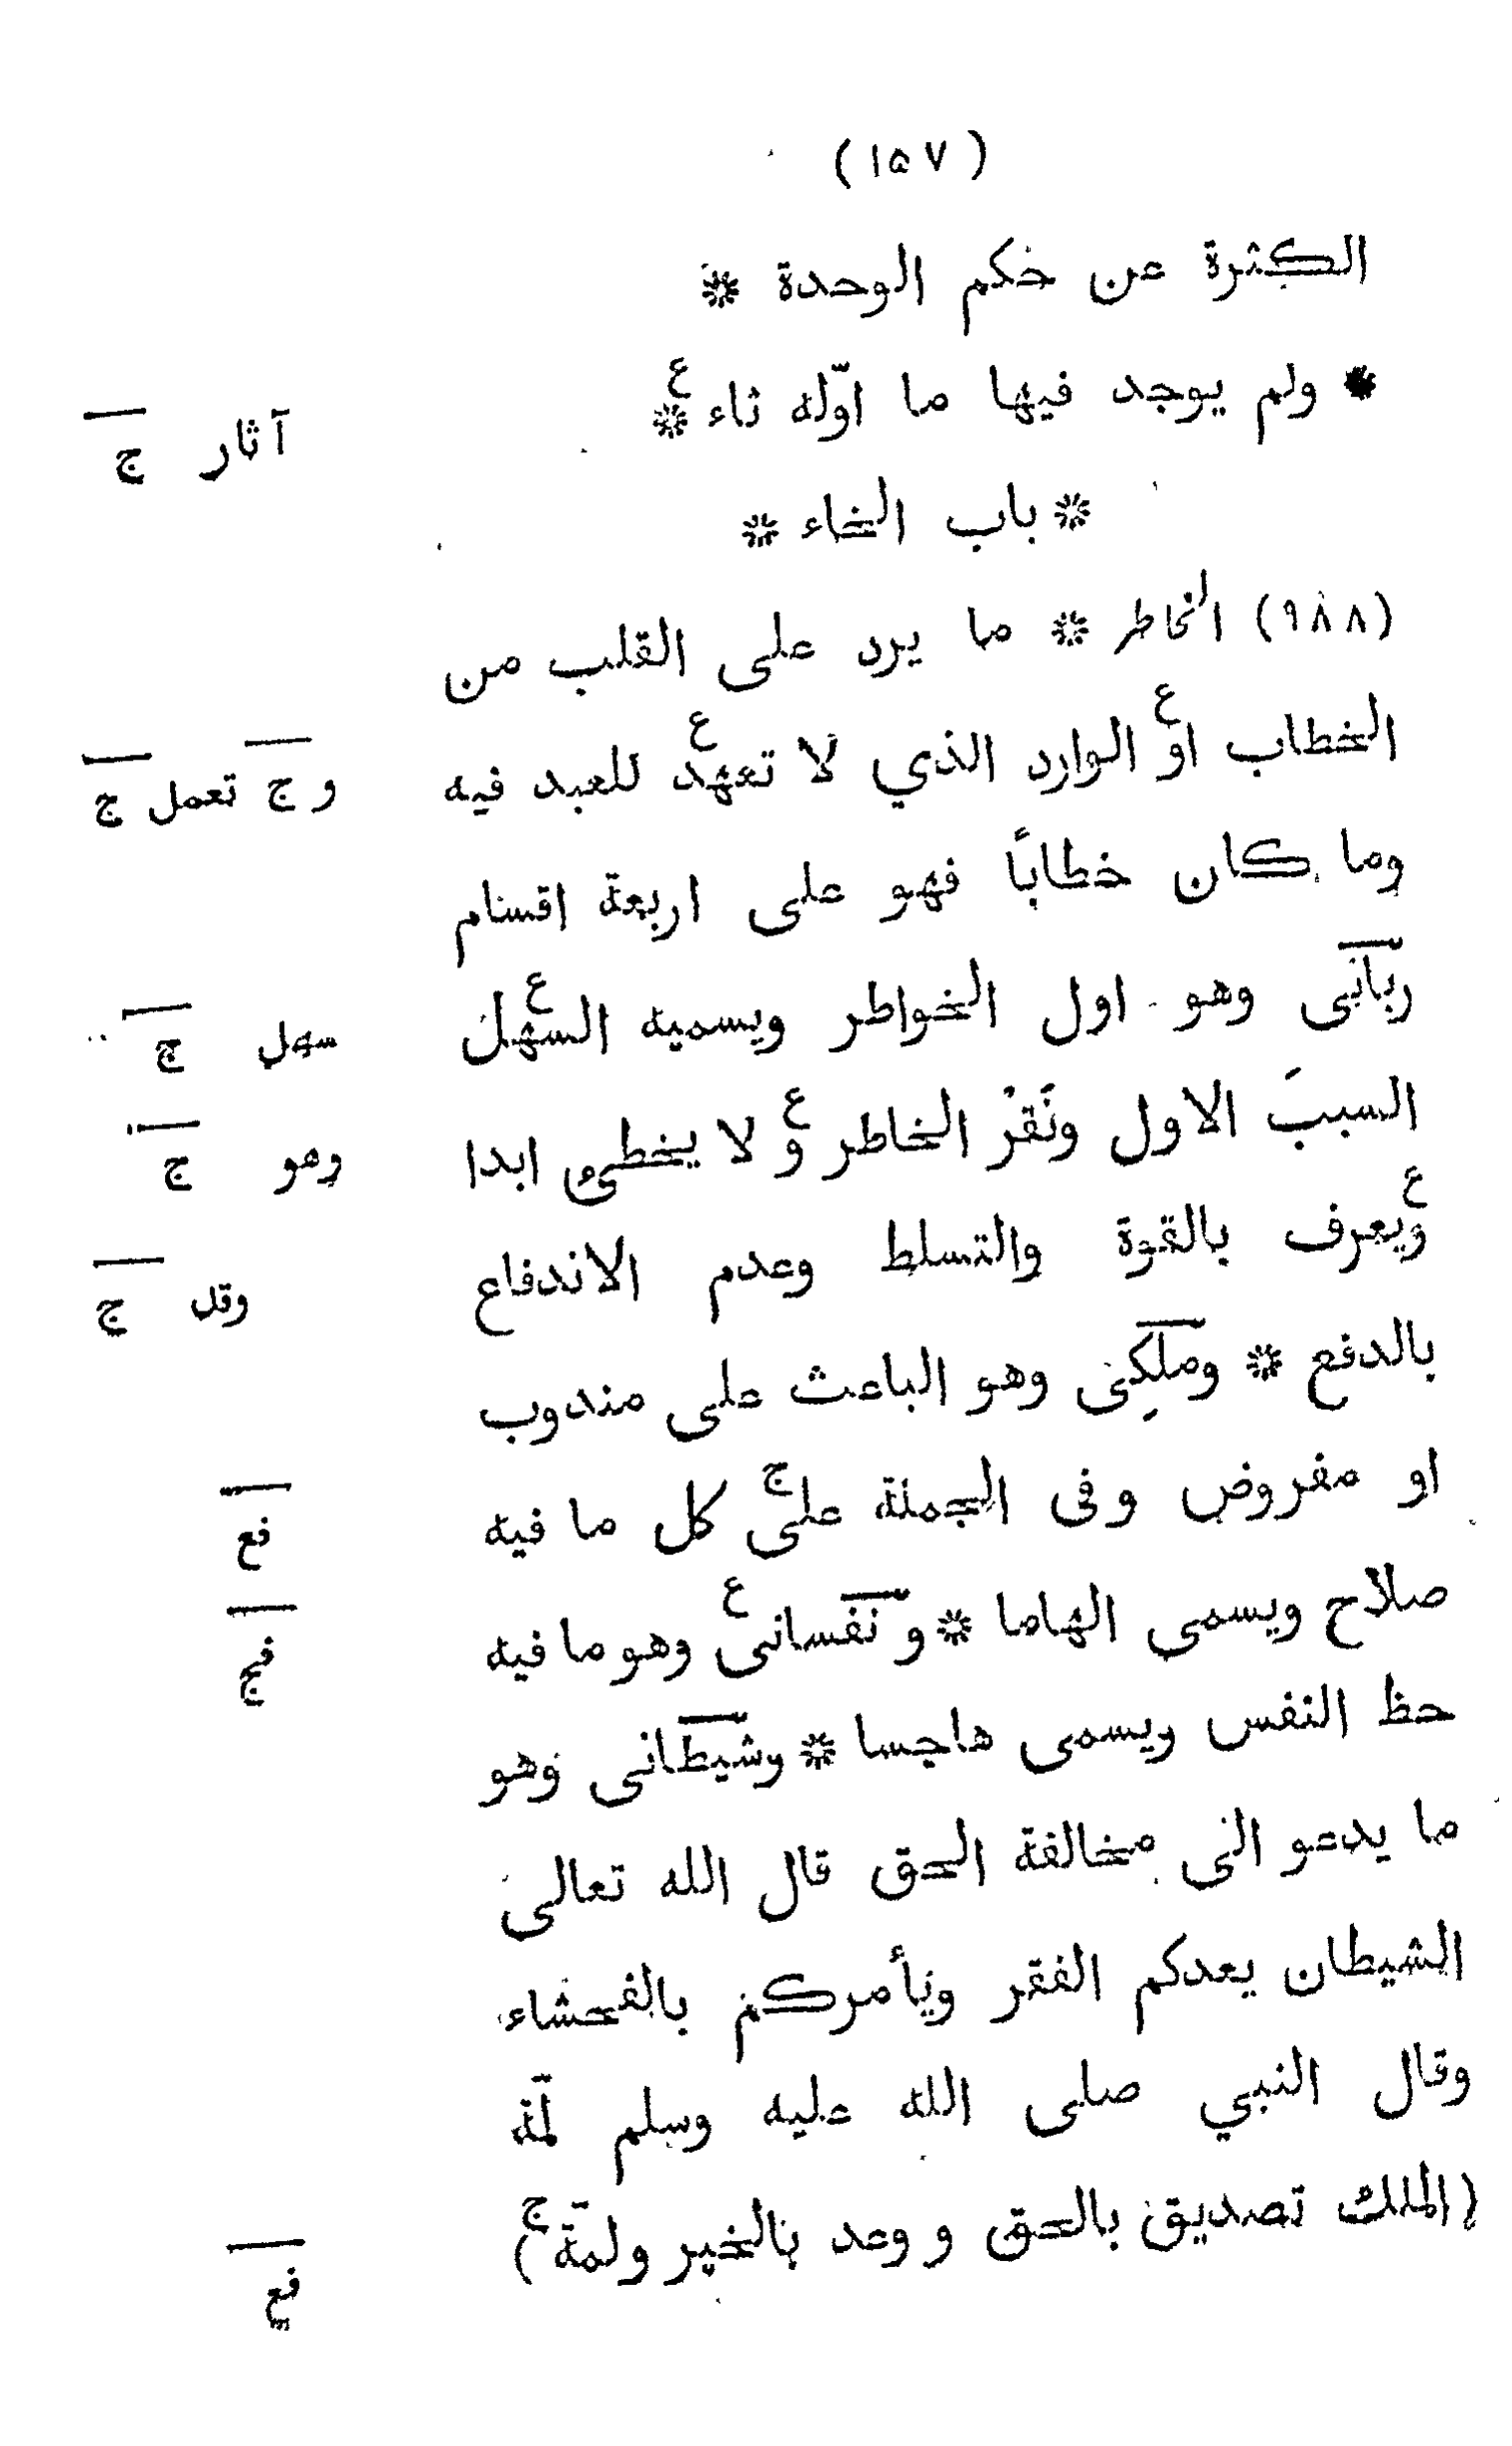 (١٥٧)
الكثرة عن حكم الوحدة *
* ولم يوجد فيها ما اوّله ثاء ع *
آثار ج
* باب الخاء *
(٩٨٨) الخاطر * ما يرد على القلب من
الخطاب او ع الوارد الذي لا تعهد ع للعبد فيه
و ج تعمل ج
وما كان خطابًا فهو على اربعة اقسام
ربّانى وهو اول الخواطر ويسميه السهل ع
سهل ج
السببَ الاول ونَقرْ الخاطر و ع لا يخطئ ابدا
وهو ج
ويعرف ع بالقوة والتسلط وعدم الاندفاع
وقد ج
بالدفع * وملكِى وهو الباعث على مندوب
او مفروض وفى الجملة على ج كل ما فيه
فع
صلاح ويسمى الهاما * ونفسانى ع وهو ما فيه
فج
حظ النفس ويسمى هاجسا * وشيطانى وهو
ما يدعو الى مخالفة الحق قال الله تعالى
الشيطان يعدكم الفقر ويأمركم بالفحشاء
وقال النبي صلى الله عليه وسلم لمّة
(الملك تصديق بالحق و وعد بالخير ولمّة ج)
فع